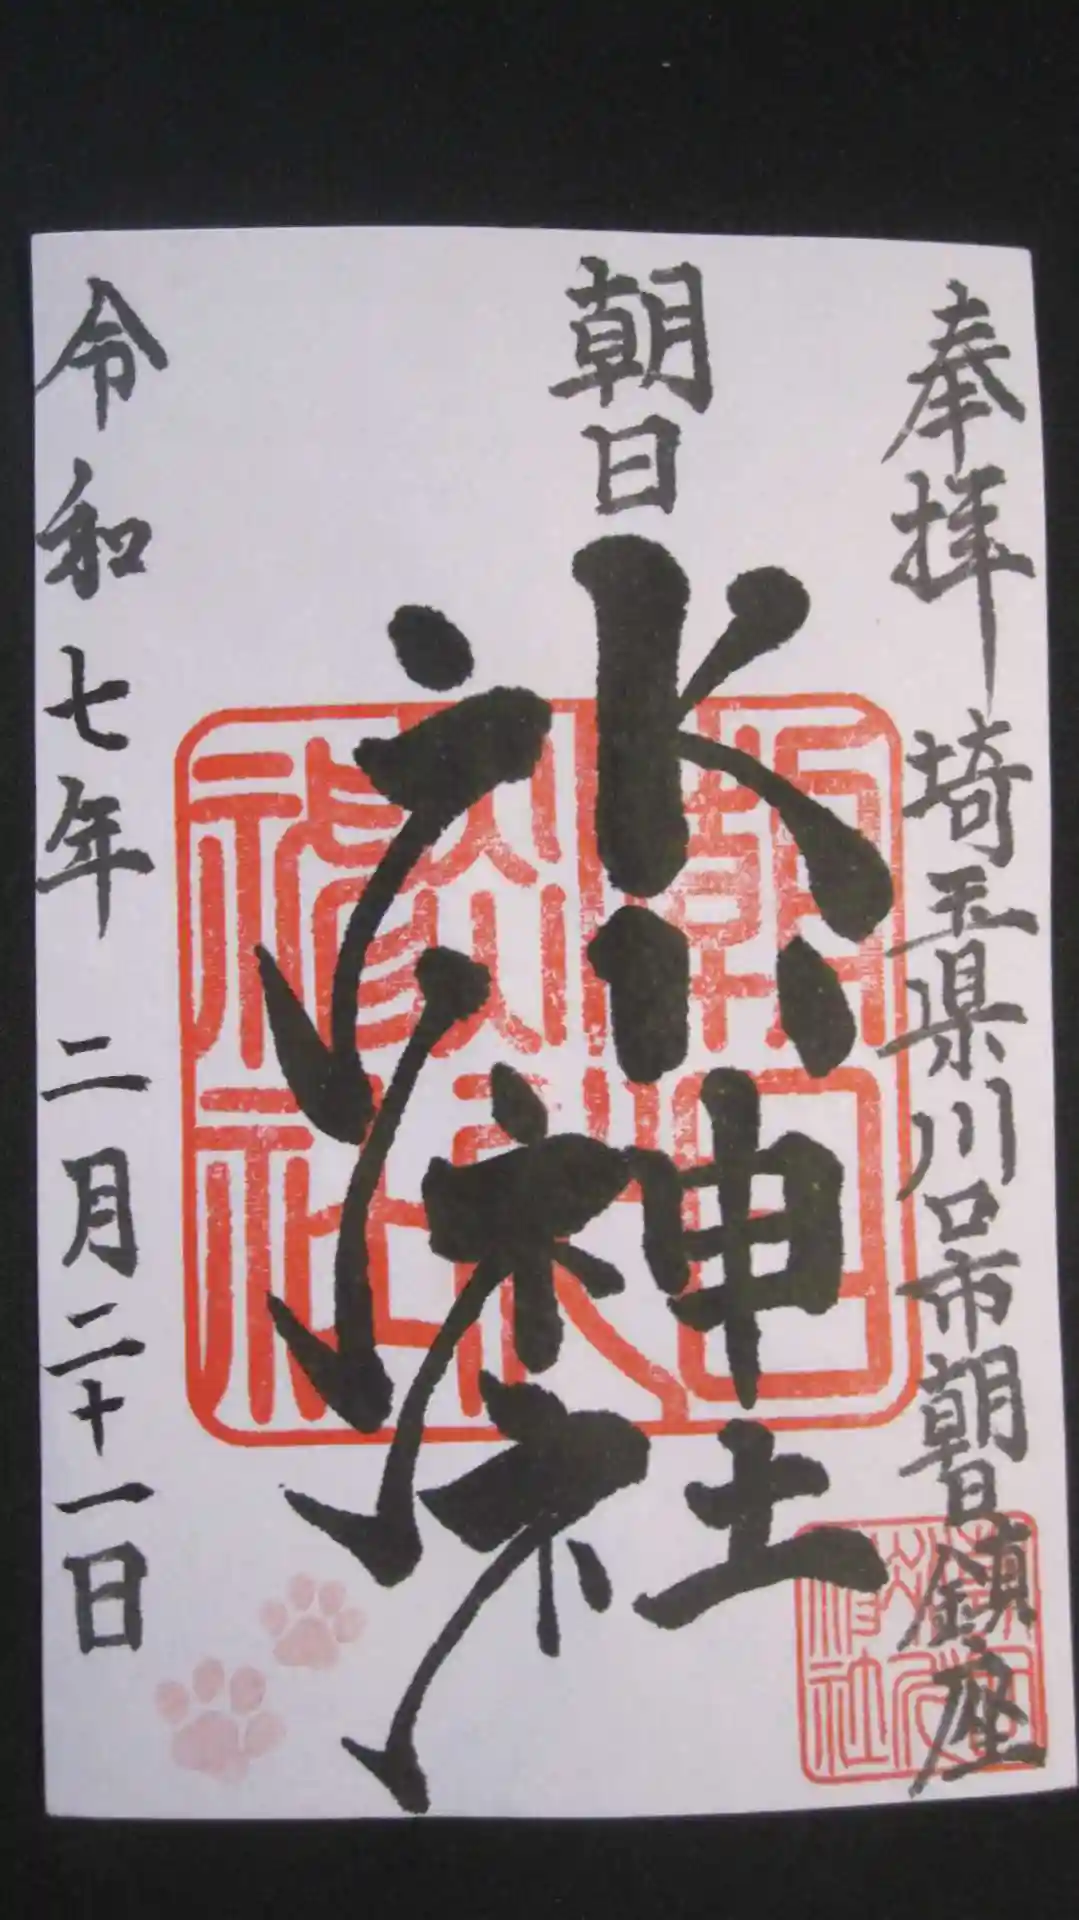 奉拝 埼玉県川口市朝日鎮座
朝日
氷川神社
令和七年 二月二十一日